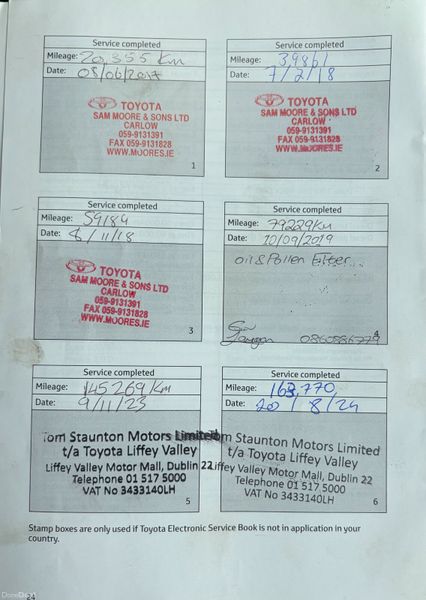 Service completed
Mileage: 20,355 Km
Date: 08/06/2017
TOYOTA
SAM MOORE & SONS LTD
CARLOW
059-9131391
FAX 059-9131828
WWW.MOORES.IE
1
Service completed
Mileage: 39861
Date: 7/2/18
TOYOTA
SAM MOORE & SONS LTD
CARLOW
059-9131391
FAX 059-9131828
WWW.MOORES.IE
2
Service completed
Mileage: 59184
Date: 8/11/18
TOYOTA
SAM MOORE & SONS LTD
CARLOW
059-9131391
FAX 059-9131828
WWW.MOORES.IE
3
Service completed
Mileage: 79229KM
Date: 10/09/2019
oil & Pollen Filter...
0860886779
4
Service completed
Mileage: 145269 Km
Date: 9/11/23
Tom Staunton Motors Limited
t/a Toyota Liffey Valley
Liffey Valley Motor Mall, Dublin 22
Telephone 01 517 5000
VAT No 3433140LH
5
Service completed
Mileage: 163,770
Date: 20/8/24
Tom Staunton Motors Limited
t/a Toyota Liffey Valley
Liffey Valley Motor Mall, Dublin 22
Telephone 01 517 5000
VAT No 3433140LH
6
Stamp boxes are only used if Toyota Electronic Service Book is not in application in your
country.
DoneDeal
24